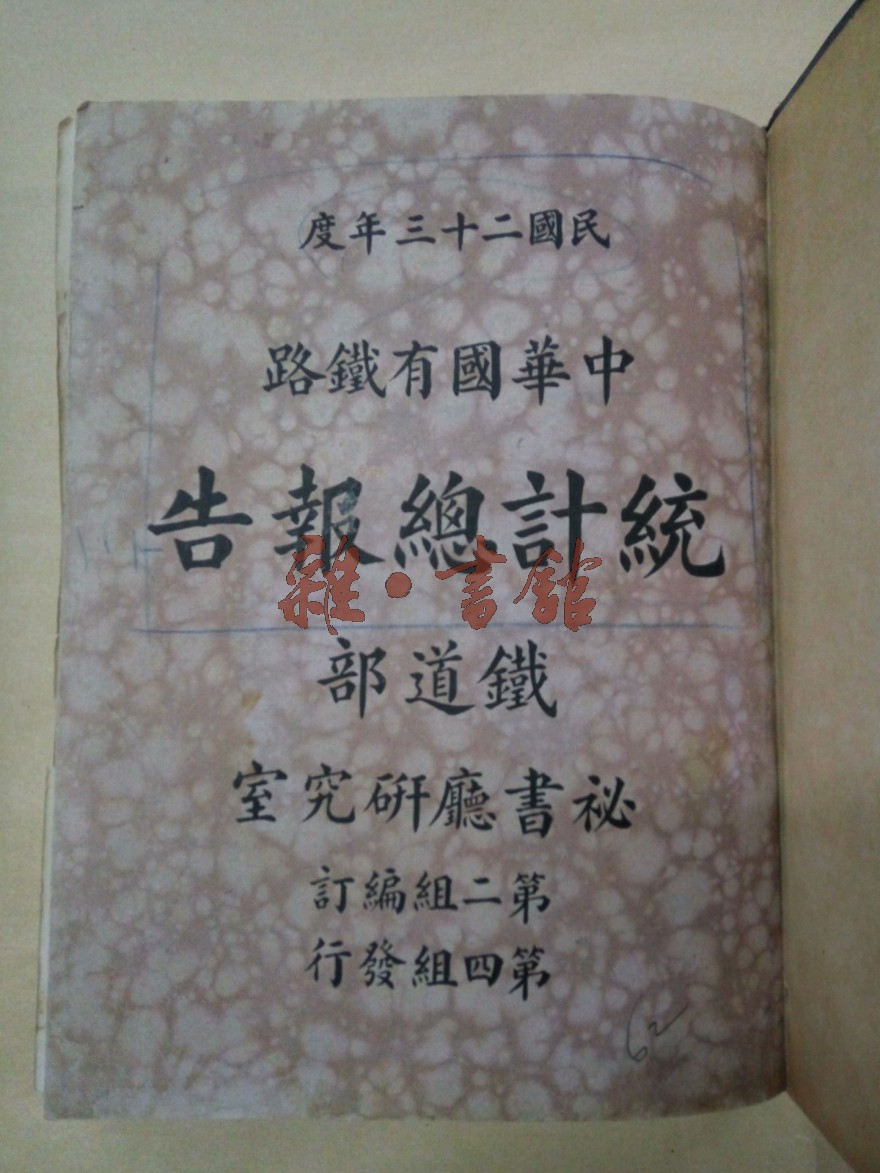 民國二十三年度
中華國有鐵路
統計總報告
雜·書館
鐵道部
祕書廳研究室
第二組編訂
第四組發行
62